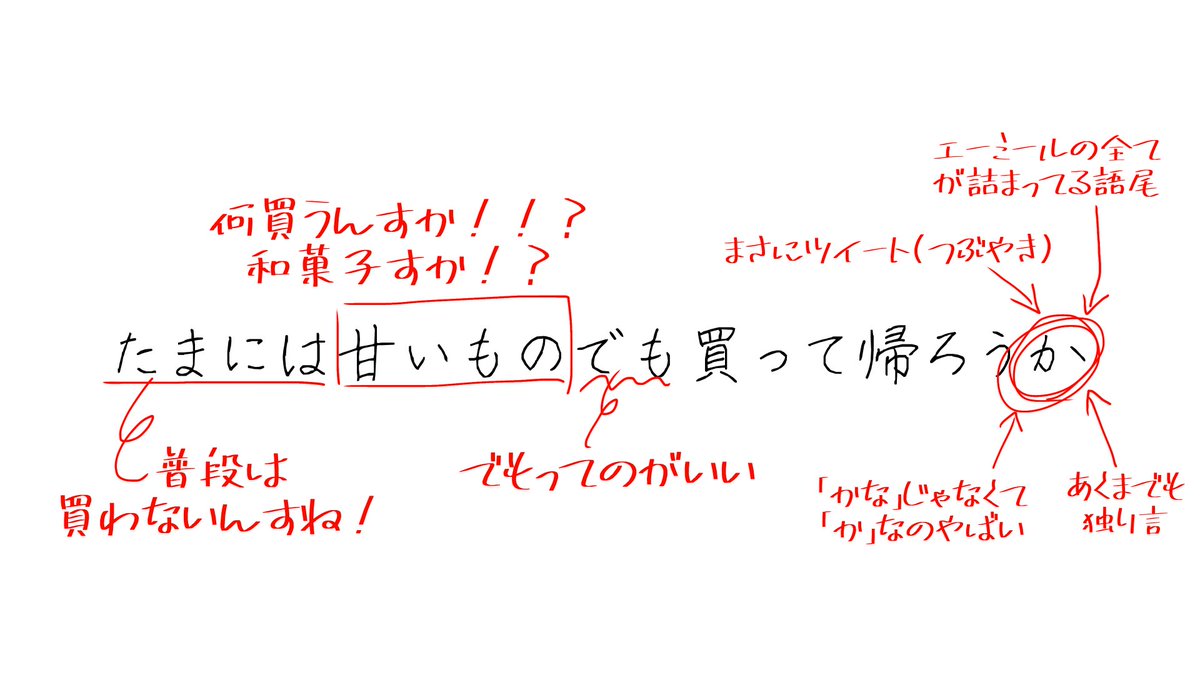 エーミールの全て
が詰まってる語尾
何買うんすか！！？
和菓子すか！？
まさにツイート(つぶやき)
たまには甘いものでも買って帰ろうか
普段は
買わないんすね！
でもってのがいい
「かな」じゃなくて
「か」なのやばい
あくまでも
独り言